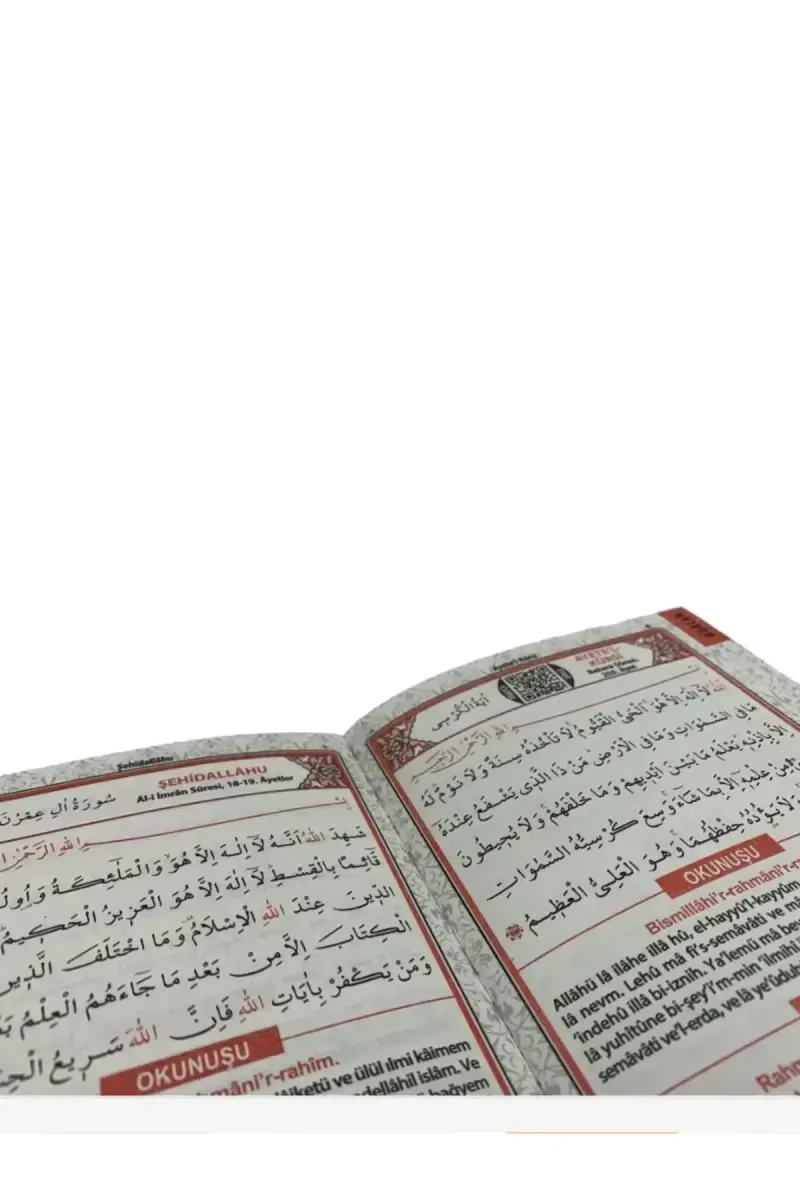 Şehidallâhu
ŞEHİDALLÂHU
Âl-i İmrân Sûresi, 18-19. Âyetler
سُورَةُ اٰلِ عِمْرٰنَ
اللّٰهِ الرَّحْمٰنِ
شَهِدَ اللّٰهُ اَنَّهُ لَٓا اِلٰهَ اِلَّا هُوَ وَالْمَلٰٓئِكَةُ وَاُولُوا
قَٓائِمًا بِالْقِسْطِ لَٓا اِلٰهَ اِلَّا هُوَ الْعَزِيزُ الْحَكِيمُ
الدِّينَ عِنْدَ اللّٰهِ الْاِسْلَامُ وَمَا اخْتَلَفَ الَّذِينَ
الْكِتَابَ اِلَّا مِنْ بَعْدِ مَا جَٓاءَهُمُ الْعِلْمُ
وَمَنْ يَكْفُرْ بِاٰيَاتِ اللّٰهِ فَاِنَّ اللّٰهَ سَرِيعُ
OKUNUŞU
mâni'r-rahîm.
ve ülül ılmi kâimem
islâm. Ve
bağyem
Âyete'l-Kürsî
ÂYETE'L-
KÜRSÎ
Bakara Sûresi,
255. Âyet
اٰيَةُ الْكُرْسِى
اللّٰهِ الرَّحْمٰنِ الرَّحِيمِ
اَللّٰهُ لَٓا اِلٰهَ اِلَّا هُوَ اَلْحَىُّ الْقَيُّومُ لَا تَأْخُذُهُ سِنَةٌ وَلَا نَوْمٌ لَهُ
مَا فِى السَّمٰوَاتِ وَمَا فِى الْاَرْضِ مَنْ ذَا الَّذِى يَشْفَعُ عِنْدَهُ
اِلَّا بِاِذْنِهِ يَعْلَمُ مَا بَيْنَ اَيْدِيهِمْ وَمَا خَلْفَهُمْ وَلَا يُحِيطُونَ
مِنْ عِلْمِهِ اِلَّا بِمَا شَٓاءَ وَسِعَ كُرْسِيُّهُ السَّمٰوَاتِ
وَلَا يَؤُدُهُ حِفْظُهُمَا وَهُوَ الْعَلِىُّ الْعَظِيمُ
OKUNUŞU
Bismillâhi'r-rahmâni'r-r
Allâhü lâ ilâhe illâ hû, el-hayyü'l-kayyûm
lâ nevm. Lehû mâ fi's-semâvâti ve mâ
'indehû illâ bi-iznih. Ya'lemü mâ be
lâ yuhîtûne bi-şey'i'm-min 'ilmihî
semâvâti ve'l-erda, ve lâ ye'ûduh
Rahm